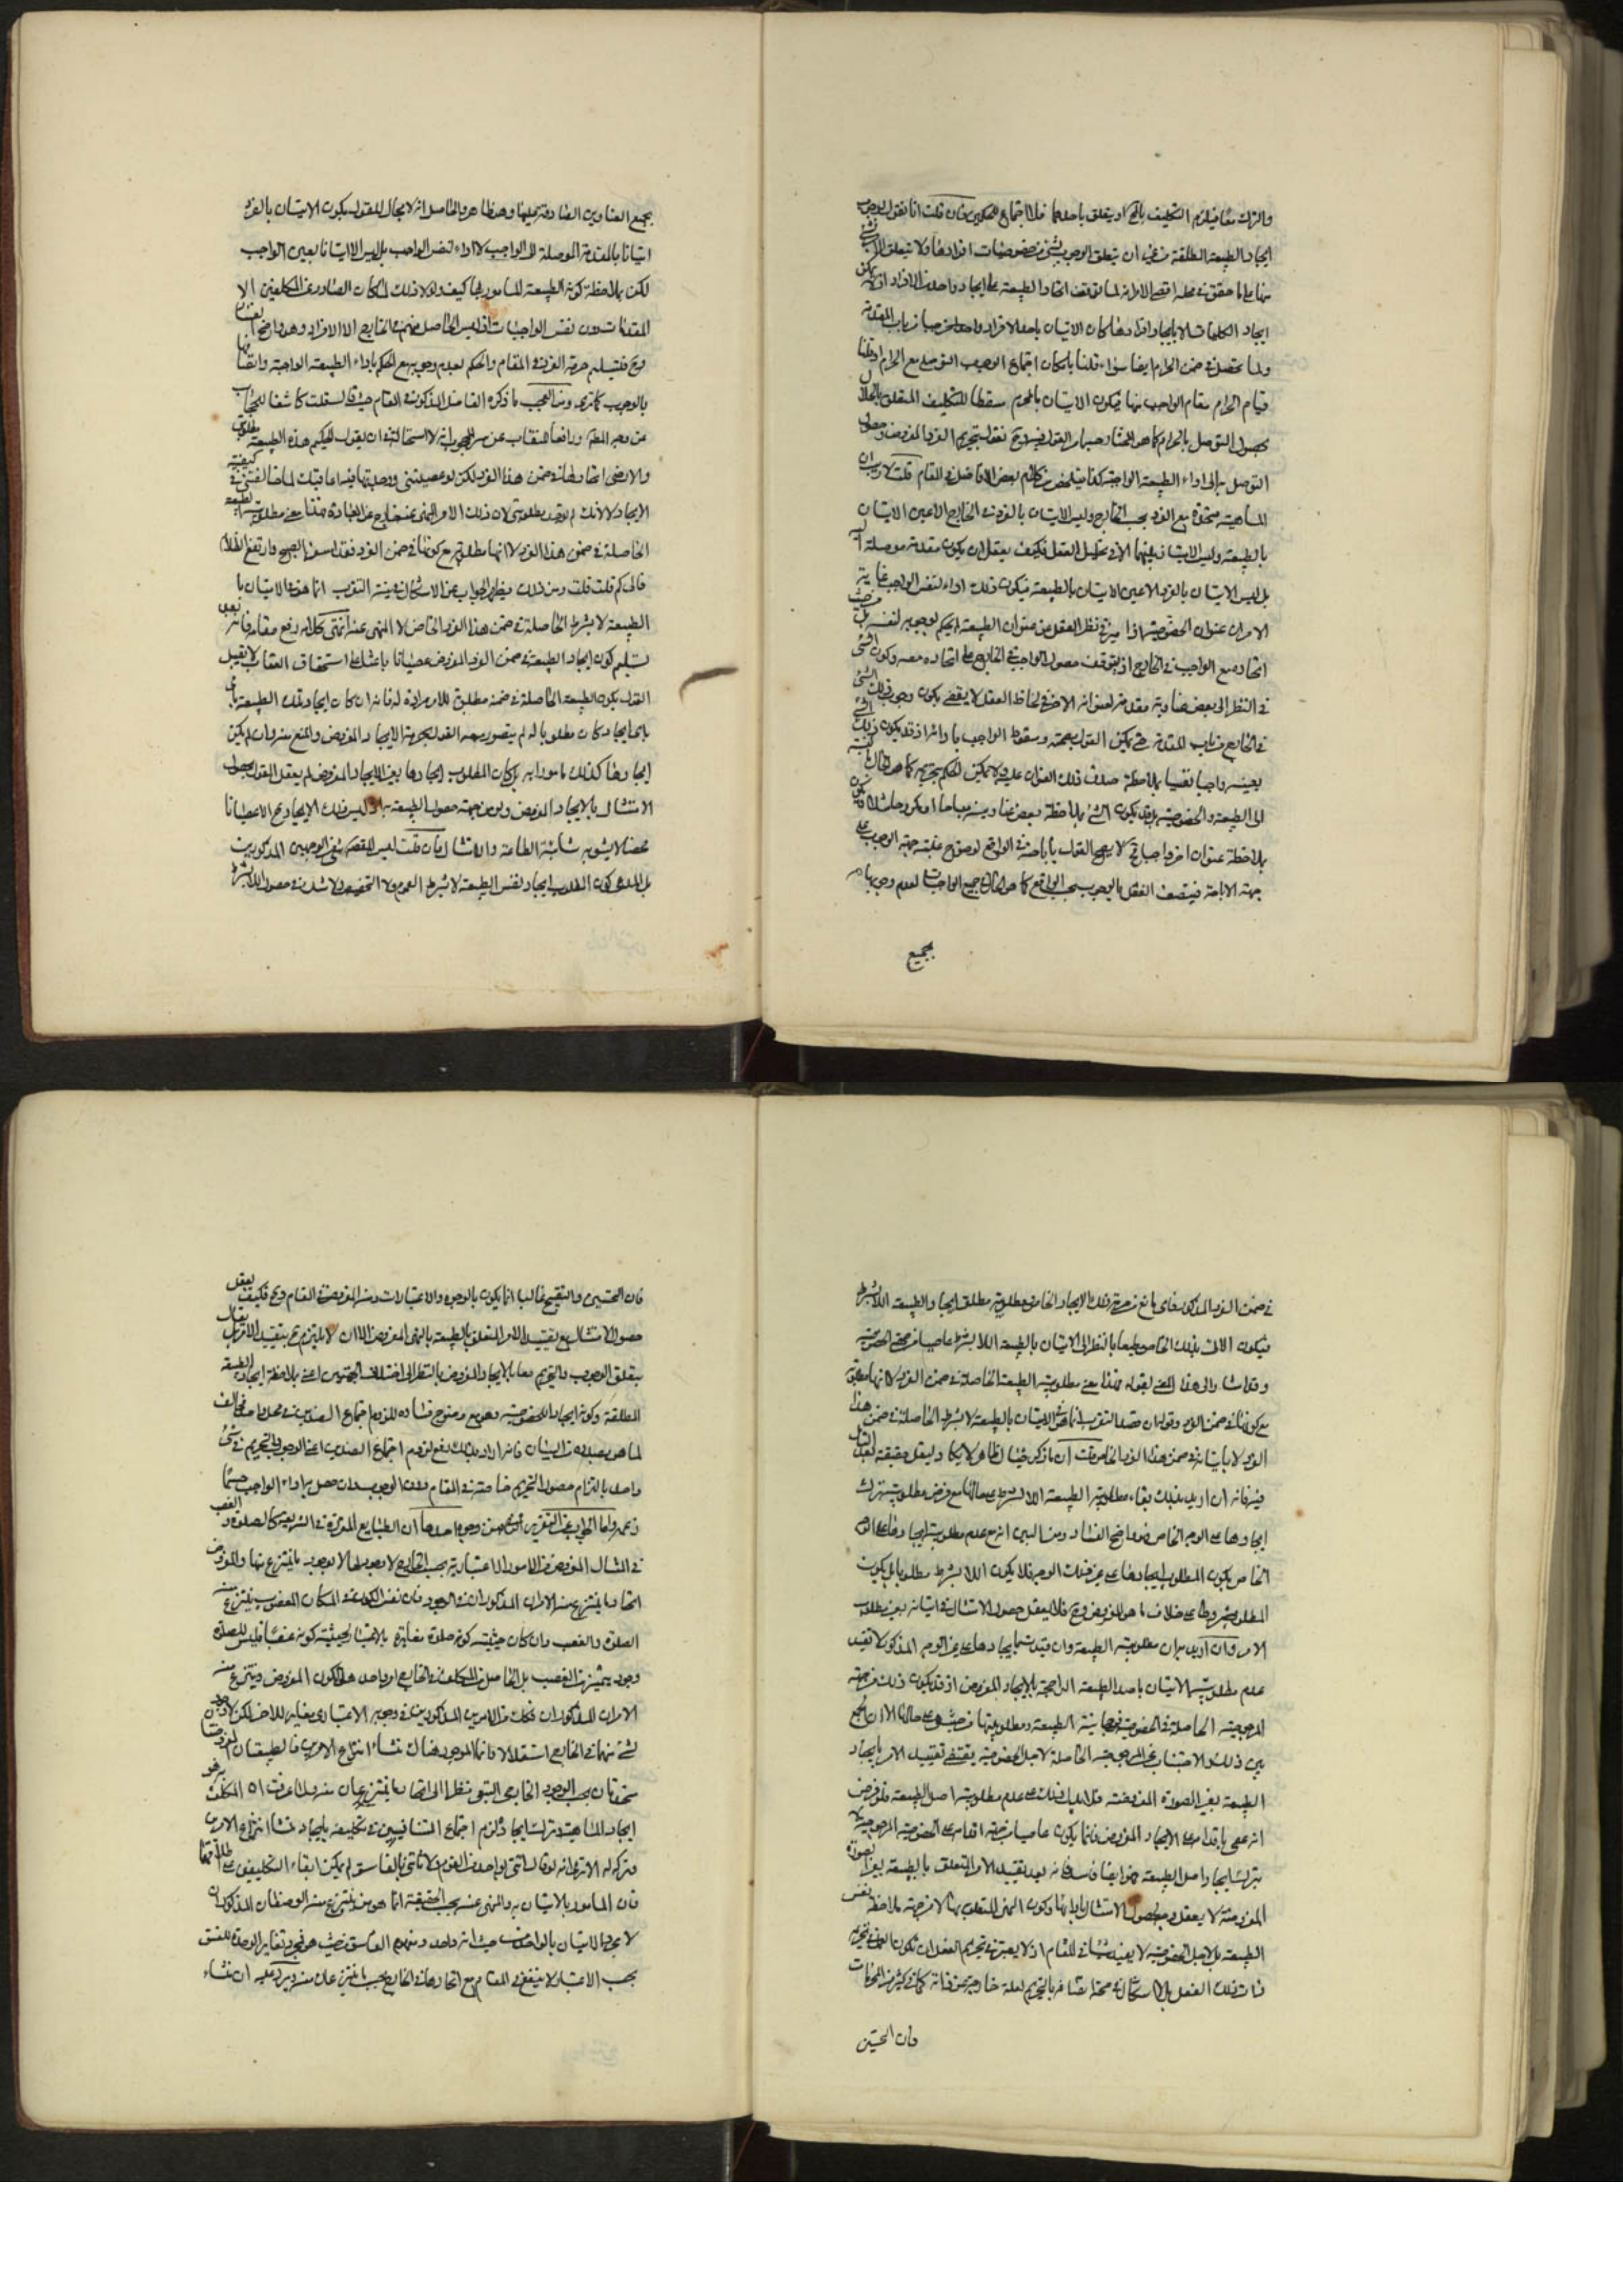 والترك معا فيلزم التكليف بالمح او يتعلق باحدهما فلا اجتماع للحكمين فان قلت انا نقول بوجوب
ايجاد الطبيعة المطلقة من غير ان يتعلق الوجوب بشئ من خصوصيات افرادها ولا يتعلق الامر بشئ
منها على ما حقق في محله اقصى الامر انه لما توقف اتحاد الطبيعة على ايجاد واحد من الافراد اذ لا يمكن
ايجاد الكليات الا بايجاد افرادها كان الاتيان باحد الافراد واجبا من باب المقدمة
ولما تحصل في ضمن الحرام ايضا سواء قلنا بامكان اجتماع الوجوب التوصلي مع الحرام او قلنا
قيام الحرام مقام الواجب منها فيكون الاتيان بالمحرم مسقطا للتكليف المتعلق بالحلال
بحصول التوصل بالحرام كما هو المختار حسبما مر القول فيه وح نقول بتحريم الفرد المفروض وحصول
التوصل به الى اداء الطبيعة الواجبة كذا يتلخص من كلام بعض الافاضل في المقام قلت لا ريب ان
الماهية متحدة مع الفرد بحسب الخارج وليس الاتيان بالفرد في الخارج الا عين الاتيان
بالطبيعة وليس الاثنينية بينهما الا في تحليل العقل فكيف يعقل ان يكون مقدمة موصلة اليه
بل ليس الاتيان بالفرد الا عين الاتيان بالطبيعة فيكون ذلك اداء لنفس الواجب غاية
الامر ان عنوان الخصوصية اذا ميز في نظر العقل من عنوان الطبيعة لم يحكم بوجوبه لنفسه بل من حيث
اتحاده مع الواجب في الخارج اذ يتوقف حصول الواجب في الخارج على اتحاده معه وكون الشئ
في النظر الى بعض عناوينه مقدمة لعنوانه الاخر في لحاظ العقل لا يقضي بكون وجوب ذلك الشئ
في الخارج من باب المقدمة حتى يمكن القول بحرمته وسقوط الواجب بادائه اذ قد يكون ذلك الشئ
بعينه واجبا نفسيا بملاحظة صدق ذلك العنوان عليه فلا يمكن الحكم بتحريمه كما هو الحال بالنسبة
الى الطبيعة والخصوصية بل قد يكون الشئ بملاحظة بعض عناوينه مباحا او مكروها مثلا ويكون
بملاحظة عنوان اخر واجبا فح لا يصح القول باباحته في الواقع لوضوح غلبة جهة الوجوب على
جهة الاباحة فيتصف الفعل بالوجوب بحسب الواقع كما هو الحال في جميع الواجبات لعدم وجوبها
بجميع
بجميع العناوين الصادقة عليها وهو ظاهر والحاصل انه لا مجال للقول بكون الاتيان بالفرد
اتيانا بالمقدمة الموصلة الى الواجب لا اداء لنفس الواجب بل ليس الا اتيانا بعين الواجب
لكن بملاحظة كونه الطبيعة المامور بها كيف ولو لا ذلك لما كان الصادر عن المكلفين الا
المقدمات دون نفس الواجبات اذ ليس الحاصل منهم في الخارج الا الافراد وهو واضح الفساد
وح فتسليم حرمة الفرد في المقام والحكم بعدم وجوبه مع الحكم باداء الطبيعة الواجبة واتصافها
بالوجوب كما ترى ومن العجب ما ذكره الفاضل المذكور في المقام حيث قال لست كاشفا للحجاب
عن وجه المط ورافعا للنقاب عن سر المحجوب انه لا استحالة في ان يقول الحكيم هذه الطبيعة مطلوبي
ولا ارضى ايجادها في ضمن هذا الفرد لكن لو عصيتني واوجدتها فيه اعاقبك لما خالفتني في كيفية
الايجاد لا لانك لم توجد مطلوبي لان ذلك الامر المنهي عنه خارج عن العبادة فهذا معنى مطلوبية الطبيعة
الحاصلة في ضمن هذا الفرد لا انها مطلوبة مع كونها في ضمن الفرد فقد اسفر الصبح وارتفع الظلام
فالى كم قلت قلت ومن ذلك يظهر الجواب عن الاشكال في نية التقرب انما هو في الاتيان با
الطبيعة لا بشرط الحاصلة في ضمن هذا الفرد الخاص لا المنهي عنه انتهى كلامه رفع مقامه فانه بعد
تسليم كون ايجاد الطبيعة في ضمن الفرد المفروض عصيانا باعثا على استحقاق العقاب لا يعقل
القول بكون الطبيعة الحاصلة في ضمنه مطلوبة للامر مرادة له فانه ان كان ايجاد تلك الطبيعة باي
بايما ايجاد كان مطلوبا له لم يتصور معه القول بحرمة الايجاد المفروض والمنع منه وان لم يكن
ايجادها كذلك مامورا به بل كان المطلوب ايجادها بغير الايجاد المفروض لم يعقل القول بحصول
الامتثال بالايجاد المفروض ولو من جهة حصول الطبيعة به اذ ليس ذلك الايجاد ح الا عصيانا
محضا لا يشوبه شائبة الطاعة والامتثال فان قلت ليس المقصود نفي الوجهين المذكورين
بل المدعى كون المطلوب ايجاد نفس الطبيعة لا بشرط العموم ولا الخصوص ولا شك في حصول اللا بشرط
في ضمن الفرد المذكور فاي مانع من حرمة ذلك الايجاد الخاص ومطلوبية مطلق ايجاد الطبيعة اللا بشرط
فيكون الاتي بذلك الخاص مطيعا بالنظر الى الاتيان بالطبيعة اللا بشرط عاصيا من جهة الخصوصية
وقد اشار الى هذا المعنى بقوله فهذا معنى مطلوبية الطبيعة الحاصلة في ضمن الفرد لا انها مطلوبة
مع كونها في ضمن الفرد وقوله ان قصد التقرب انما هو في الاتيان بالطبيعة لا بشرط الحاصلة في ضمن هذا
الفرد لا باتيانه في ضمن هذا الفرد الخاص قلت ان ما ذكر خيال ظاهري لا يكاد يعقل حقيقته بعد التامل
فيه فانه ان اريد بذلك بقاء مطلوبية الطبيعة اللا بشرط على حالها مع فرض مطلوبية ترك
ايجادها على الوجه الخاص فهو واضح الفساد ومن البين انه مع عدم مطلوبية ايجادها على الوجه
الخاص يكون المطلوب ايجادها على غير ذلك الوجه فلا يكون اللا بشرط مطلوبا بل يكون
المطلوب مشروطا على خلاف ما هو المفروض وح فلا يعقل حصول الامتثال في اتيانه بغير مطلوب
الامر وان اريد به ان مطلوبية الطبيعة وان قيدت بايجادها على غير الوجه المذكور لا تفيد
عدم مطلوبية الاتيان باصل الطبيعة الراجحة بالايجاد المفروض اذ قد يكون ذلك من جهة
المرجوحية الحاصلة في الخصوصية مجانبة الطبيعة ومطلوبيتها من حيث هي على حالها الا ان الجمع
بين ذلك والاجتناب عن المرجوحية الحاصلة لاجل الخصوصية يقتضي تقييد الامر بايجاد
الطبيعة بغير الصورة المفروضة فلا يدل ذلك على عدم مطلوبية اصل الطبيعة فلو فرض
انه عصى باقدامه على الايجاد المفروض فانما يكون عاصيا من جهة اقدامه على الخصوصية المرجوحة لا
بترك ايجاد اصل الطبيعة فهو ايضا فاسد فانه بعد تقييد الامر المتعلق بالطبيعة بغير الصورة
المفروضة لا يعقل وجه لحصول الامتثال بادائها وكون النهي المتعلق بها لا من جهة ملاحظة نفس
الطبيعة بل لاجل الخصوصية لا يفيد شيئا في المقام اذ لا يعتبر في تحريم الفعل ان يكون العلة في تحريمه
ذات ذلك الفعل بل لا اشكال في صحة اتصافه بالتحريم لعلة خارجة عن ذاته كما في كثير من المحرمات
فان التحسين
فان التحسين والتقبيح غالبا انما يكون بالوجوه والاعتبارات ومنه المفروض في المقام وح فكيف يعقل
حصول الامتثال مع تقييد الامر المتعلق بالطبيعة بالنهي المفروض الا ان لا يلتزم ح بتقييد الامر بل يقال
بتعلق الوجوب والتحريم معا بالايجاد المفروض بالنظر الى اختلاف الجهتين اعني ملاحظة ايجاد الطبيعة
المطلقة وكونه ايجادا للخصوصية وهو مع وضوح فساده للزوم اجتماع الضدين في محل واحد مخالف
لما هو بصدده من البيان فانه اراد بذلك دفع لزوم اجتماع الضدين اعني الوجوب والتحريم في شئ
واحد بالتزام حصول التحريم خاصة في المقام دون الوجوب وان حصل به اداء الواجب حسبما
زعمه واما الجواب عن التقرير الثاني فمن وجوه احدها ان الطبايع المقررة في الشريعة كالصلوة والغصب
في المثال المفروض من الامور الاعتبارية بحسب الخارج لا وجود لها الا بوجود ما ينتزع منها والمفروض
اتحاد ما ينتزع منه الامران المذكوران في الوجود فان نفس الكون في المكان المغصوب ينتزع منه
الصلوة والغصب وان كان حيثية كونه صلوة مغايرة بالاعتبار لحيثية كونه غصبا فليس للصلوة
وجود يتميز عن الغصب بل الحاصل من المكلف في الخارج امر واحد هو الكون المفروض وينتزع منه
الامران المذكوران فكل من الامرين المذكورين في وجوده الاعتباري مغاير للاخر لكن لا وجود
لشئ منهما في الخارج استقلالا فانما الموجود هناك منشا انتزاع الامرين فالطبيعتان المفروضتان
متحدتان بحسب الوجود الخارجي التبعي نظرا الى اتحاد ما ينتزعان منه بل ما عرفت اه المكلف به هو
ايجاد الماهية وترك ايجادها لزم اجتماع المتنافيين في تكليفه بايجاد منشا انتزاع الامرين
وتركه الا ترى انه لو قال ائتني بواحد من القوم ولا تاتني بالفاسق لم يمكن ابقاء التكليفين على اطلاقهما
فان المامور بالاتيان به والمنهي عنه بحسب الحقيقة انما هو من ينتزع منه الوصفان المذكوران
لا مجرد الاتيان بالواحد من حيث انه واحد ومفهوم الفاسق من حيث هو فمجرد تغاير الوحدة للفسق
بحسب الاعتبار لا ينفع في المقام مع اتحادهما في الخارج بحسب ما ينتزعان منه ويرد عليه ان منشاء